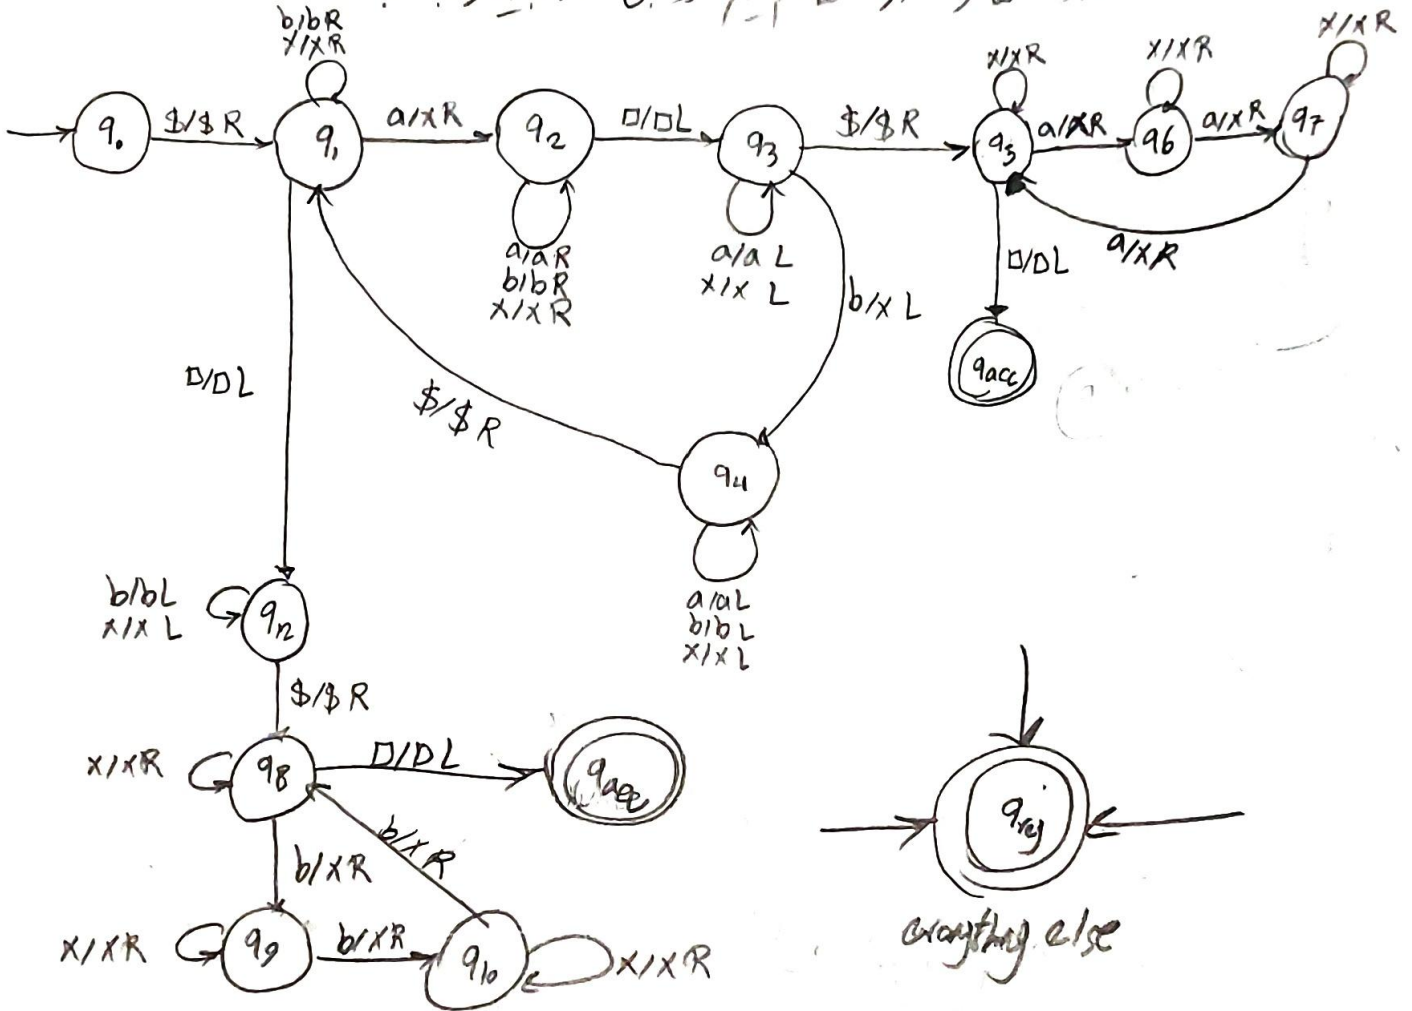 b/bR
x/xR
q0
$/$ R
q1
a/xR
q2
□/□L
q3
$/$ R
x/xR
q5
a/xR
x/xR
q6
a/xR
x/xR
q7
a/xR
a/aR
b/bR
x/xR
a/a L
x/x L
b/x L
□/□L
qacc
□/□L
$/$ R
q4
a/aL
b/bL
x/xL
b/bL
x/x L
q12
$/$ R
x/xR
q8
□/□L
qacc
b/xR
b/xR
x/xR
q9
b/xR
q10
x/xR
qrej
everything else